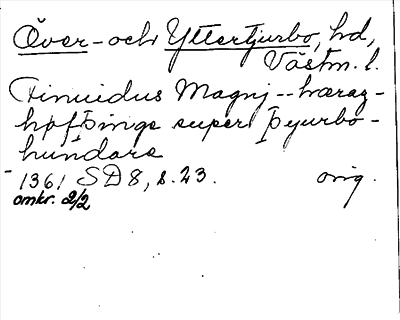 Över- och Yttertjurbo, hd,
Västm. l.
Finuidus Magnj -- hæraz-
høfþinge super Þyurbo-
hundare
1361 SD 8, s. 23. orig.
omkr. 2/2